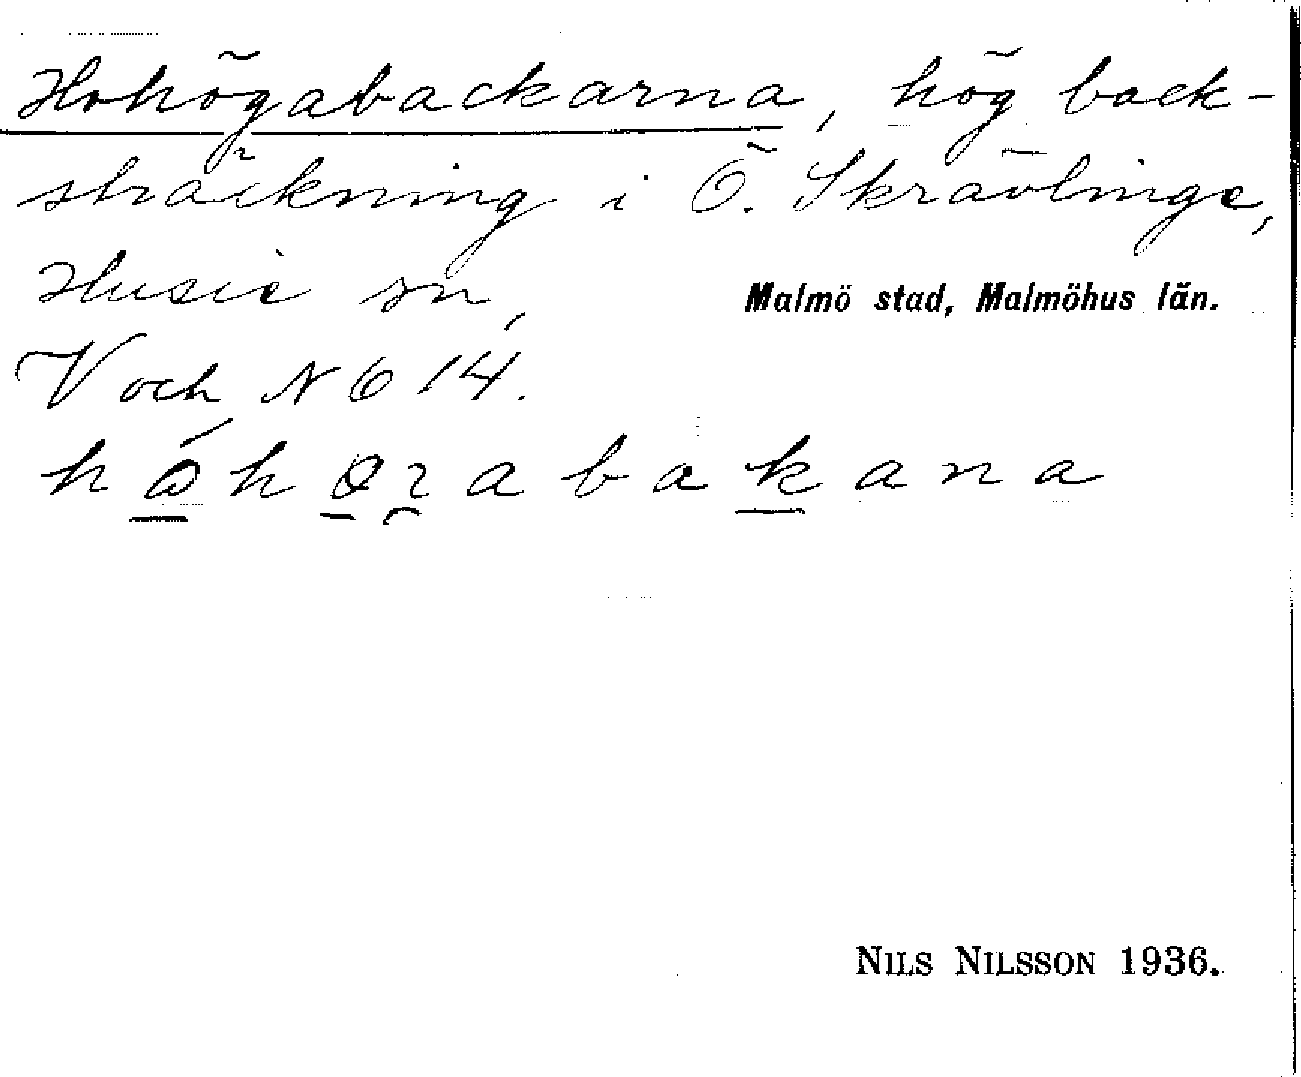 Hohögabackarna, hög back-
sträckning i Ö. Skrävlinge,
Husie sn,
Malmö stad, Malmöhus län.
V och N 6 14.
NILS NILSSON 1936.